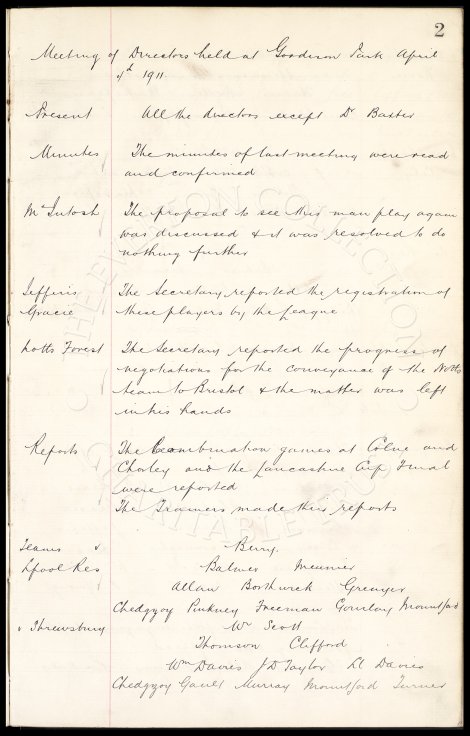 2
Meeting of Directors held at Goodison Park April
4th 1911
Present All the directors except Dr Baxter
Minutes The minutes of last meeting were read
and confirmed
McIntosh The proposal to see this man play again
was discussed & it was resolved to do
nothing further
Jefferis The Secretary reported the registration of
Gracie these players by the League
Notts Forest The Secretary reported the progress of
negotiations for the conveyance of the Notts
team to Bristol & the matter was left
in his hands
Reports The Combination games at Colne and
Chorley and the Lancashire Cup Final
were reported
The Trainers made their reports
Teams v Berry
Lpool Res Balmer Meunier
Allan Borthwick Grenyer
Chedgzoy Pinkney Freeman Gourlay Mountford
v Shrewsbury Wm Scott
Thomson Clifford
Wm Davies J D Taylor Ll Davies
Chedgzoy Gault Murray Mountford Turner
THE EVERTON COLLECTION
CHARITABLE TRUST